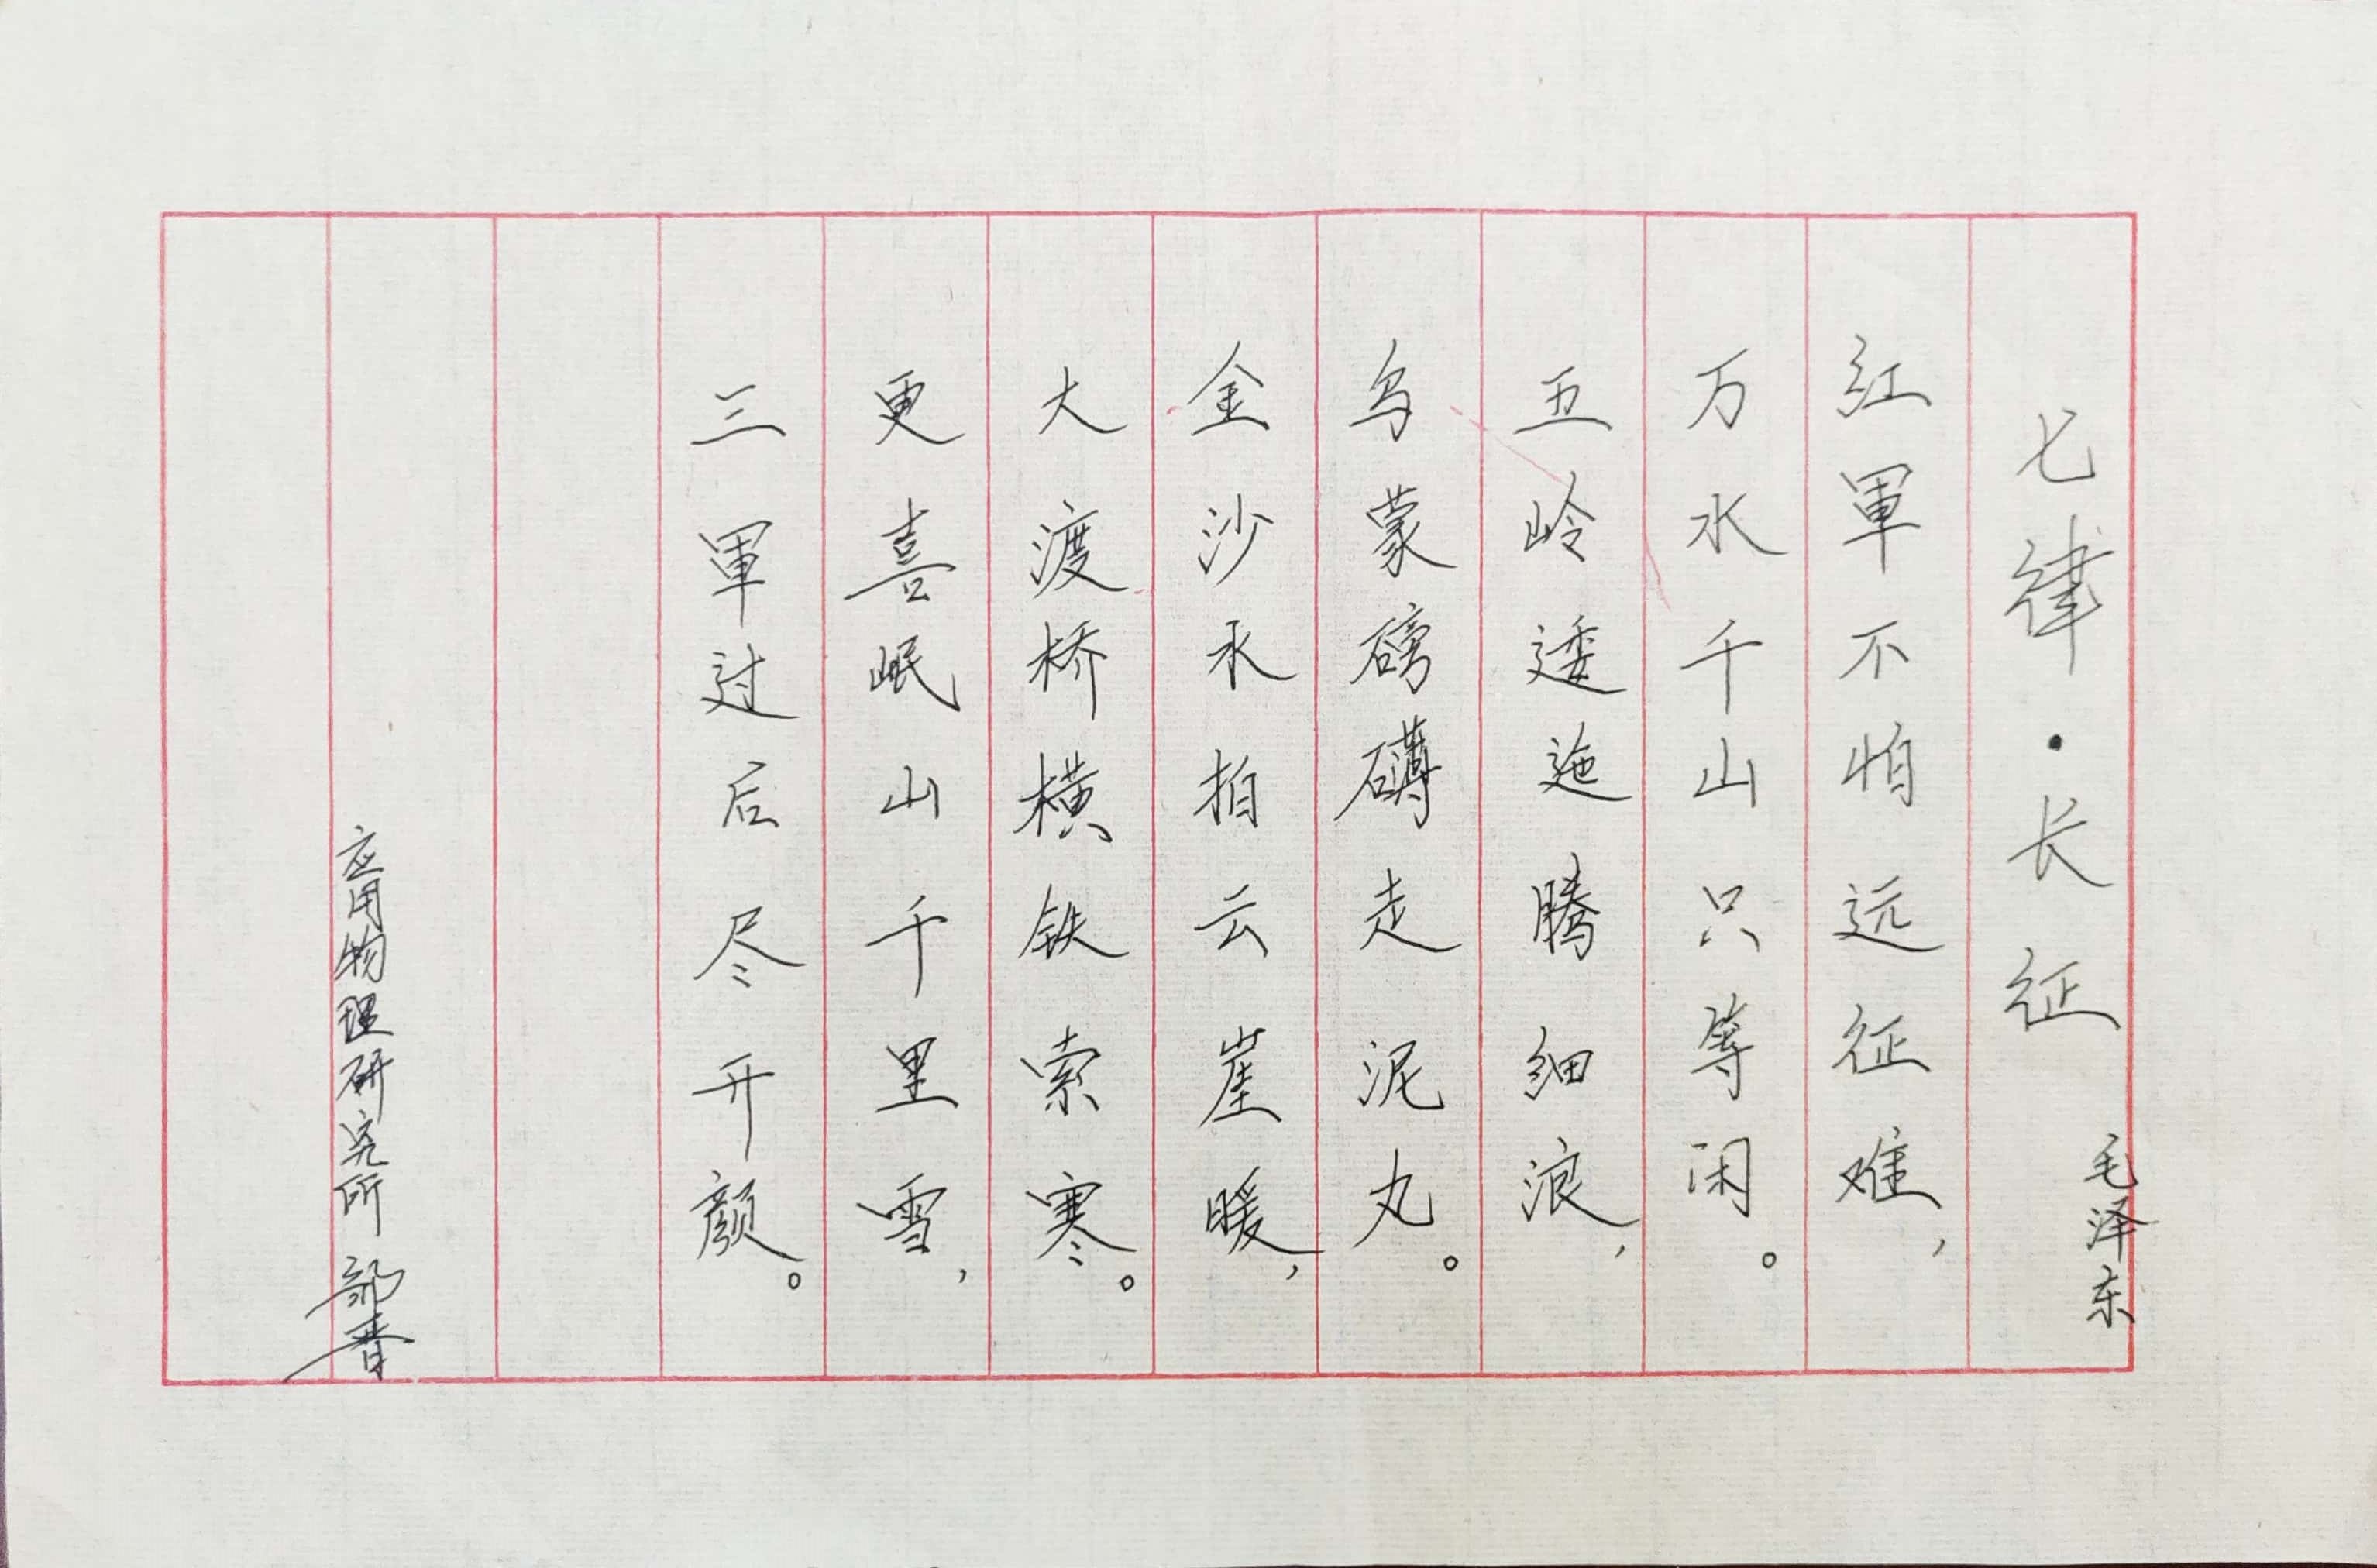 七律·长征 毛泽东
红軍不怕远征难，
万水千山只等闲。
五岭逶迤腾细浪，
乌蒙磅礴走泥丸。
金沙水拍云崖暖，
大渡桥横铁索寒。
更喜岷山千里雪，
三軍过后尽开颜。
应用物理研究所